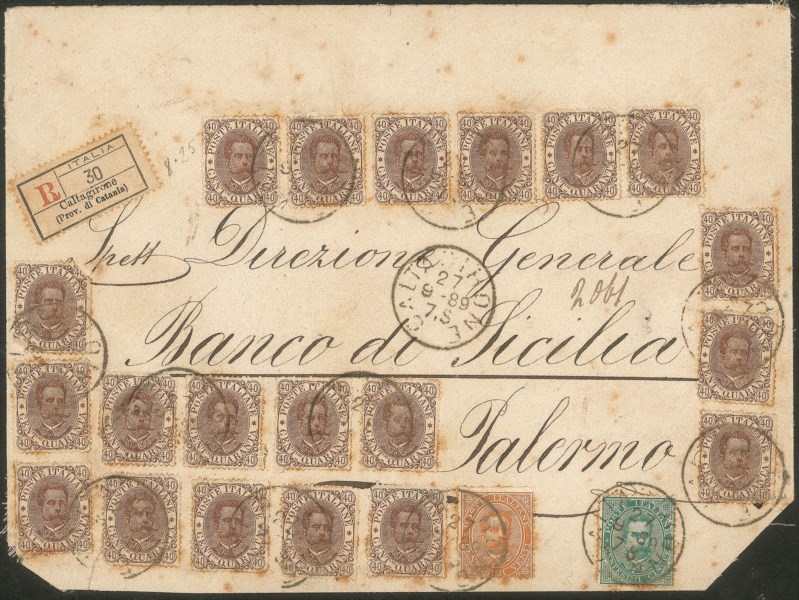 ITALIA
R
30
Caltagirone
(Prov. di Catania)
8.25
40 POSTE ITALIANE 40
40 CENT. QUARANTA 40
Spett Direzione Generale
CALTAGIRONE
27
9-89
7.S
2061
Banco di Sicilia
Palermo
POSTE ITALIANE